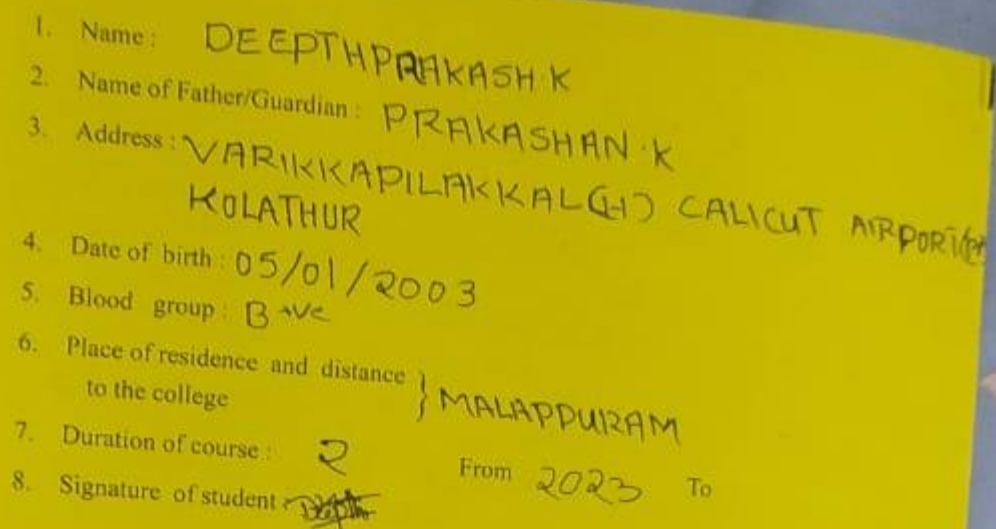 1. Name : DEEPTHPRAKASH.K
2. Name of Father/Guardian : PRAKASHAN.K
3. Address : VARIKKAPILAKKAL(H) CALICUT AIRPORT
KOLATHUR
4. Date of birth : 05/01/2003
5. Blood group : B +ve
6. Place of residence and distance
to the college } MALAPPURAM
7. Duration of course : 2 From 2023 To
8. Signature of student :